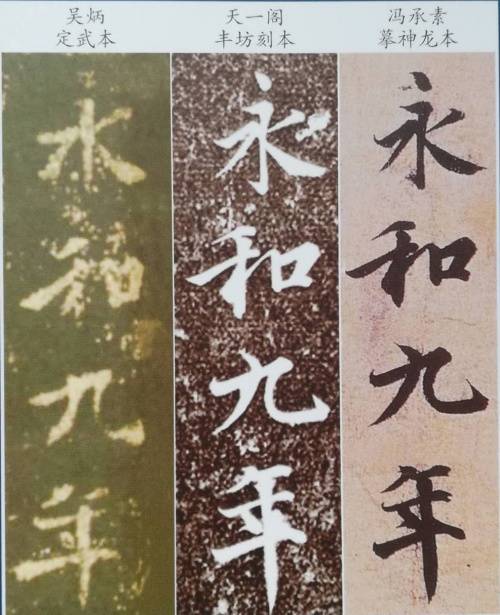 吴炳
定武本
天一阁
丰坊刻本
冯承素
摹神龙本
永和九年
永和九年
永和九年